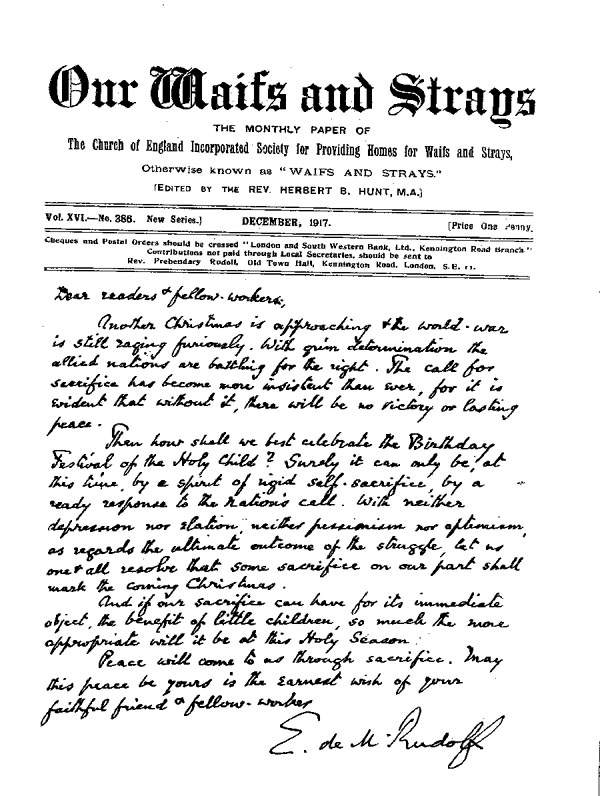 Our Waifs and Strays
THE MONTHLY PAPER OF
The Church of England Incorporated Society for Providing Homes for Waifs and Strays,
Otherwise known as "WAIFS AND STRAYS."
[EDITED BY THE REV. HERBERT B. HUNT, M.A.]
Vol. XVI.—No. 386. New Series.] DECEMBER, 1917. [Price One Penny.
Cheques and Postal Orders should be crossed "London and South Western Bank, Ltd., Kennington Road Branch"
Contributions not paid through Local Secretaries, should be sent to
Rev. Prebendary Rudolf, Old Town Hall, Kennington Road, London, S.E. 11.
Dear readers & fellow-workers,
Another Christmas is approaching & the world-war
is still raging furiously. With grim determination the
allied nations are battling for the right. The call for
sacrifice has become more insistent than ever, for it is
evident that without it, there will be no victory or lasting
peace.
Then how shall we best celebrate the Birthday
Festival of the Holy Child? Surely it can only be, at
this time, by a spirit of rigid self-sacrifice, by a
ready response to the Nation's call. With neither
depression nor elation, neither pessimism nor optimism,
as regards the ultimate outcome of the struggle, let us
one & all resolve that some sacrifice on our part shall
mark the coming Christmas.
And if our sacrifice can have for its immediate
object, the benefit of little children, so much the more
appropriate will it be at this Holy Season.
Peace will come to us through sacrifice. May
this peace be yours is the earnest wish of your
faithful friend & fellow-worker
E. de M. Rudolf